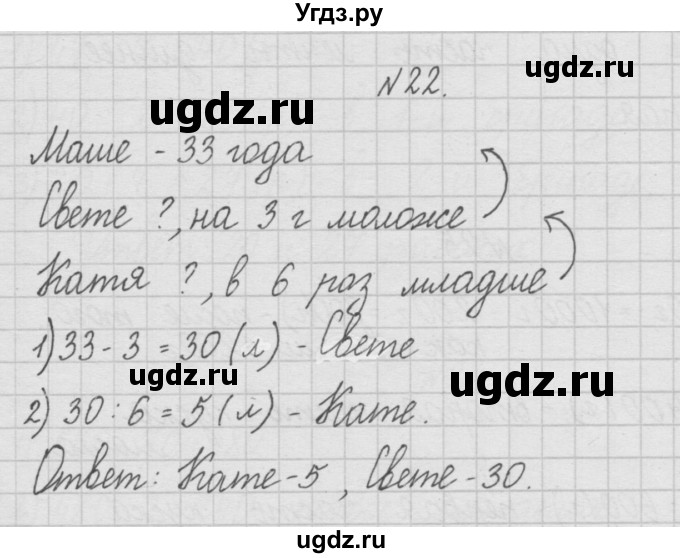 Угдз.ру
№22.
ugdz.ru
ugdz.ru
Маше - 33 года
Свете ?, на 3 г моложе
Катя ?, в 6 раз младше
1) 33 - 3 = 30 (л) - Свете
ugdz.ru
ugdz.ru
2) 30 : 6 = 5 (л) - Кате.
Ответ: Кате - 5, Свете - 30.
ugdz.ru
ugdz.ru